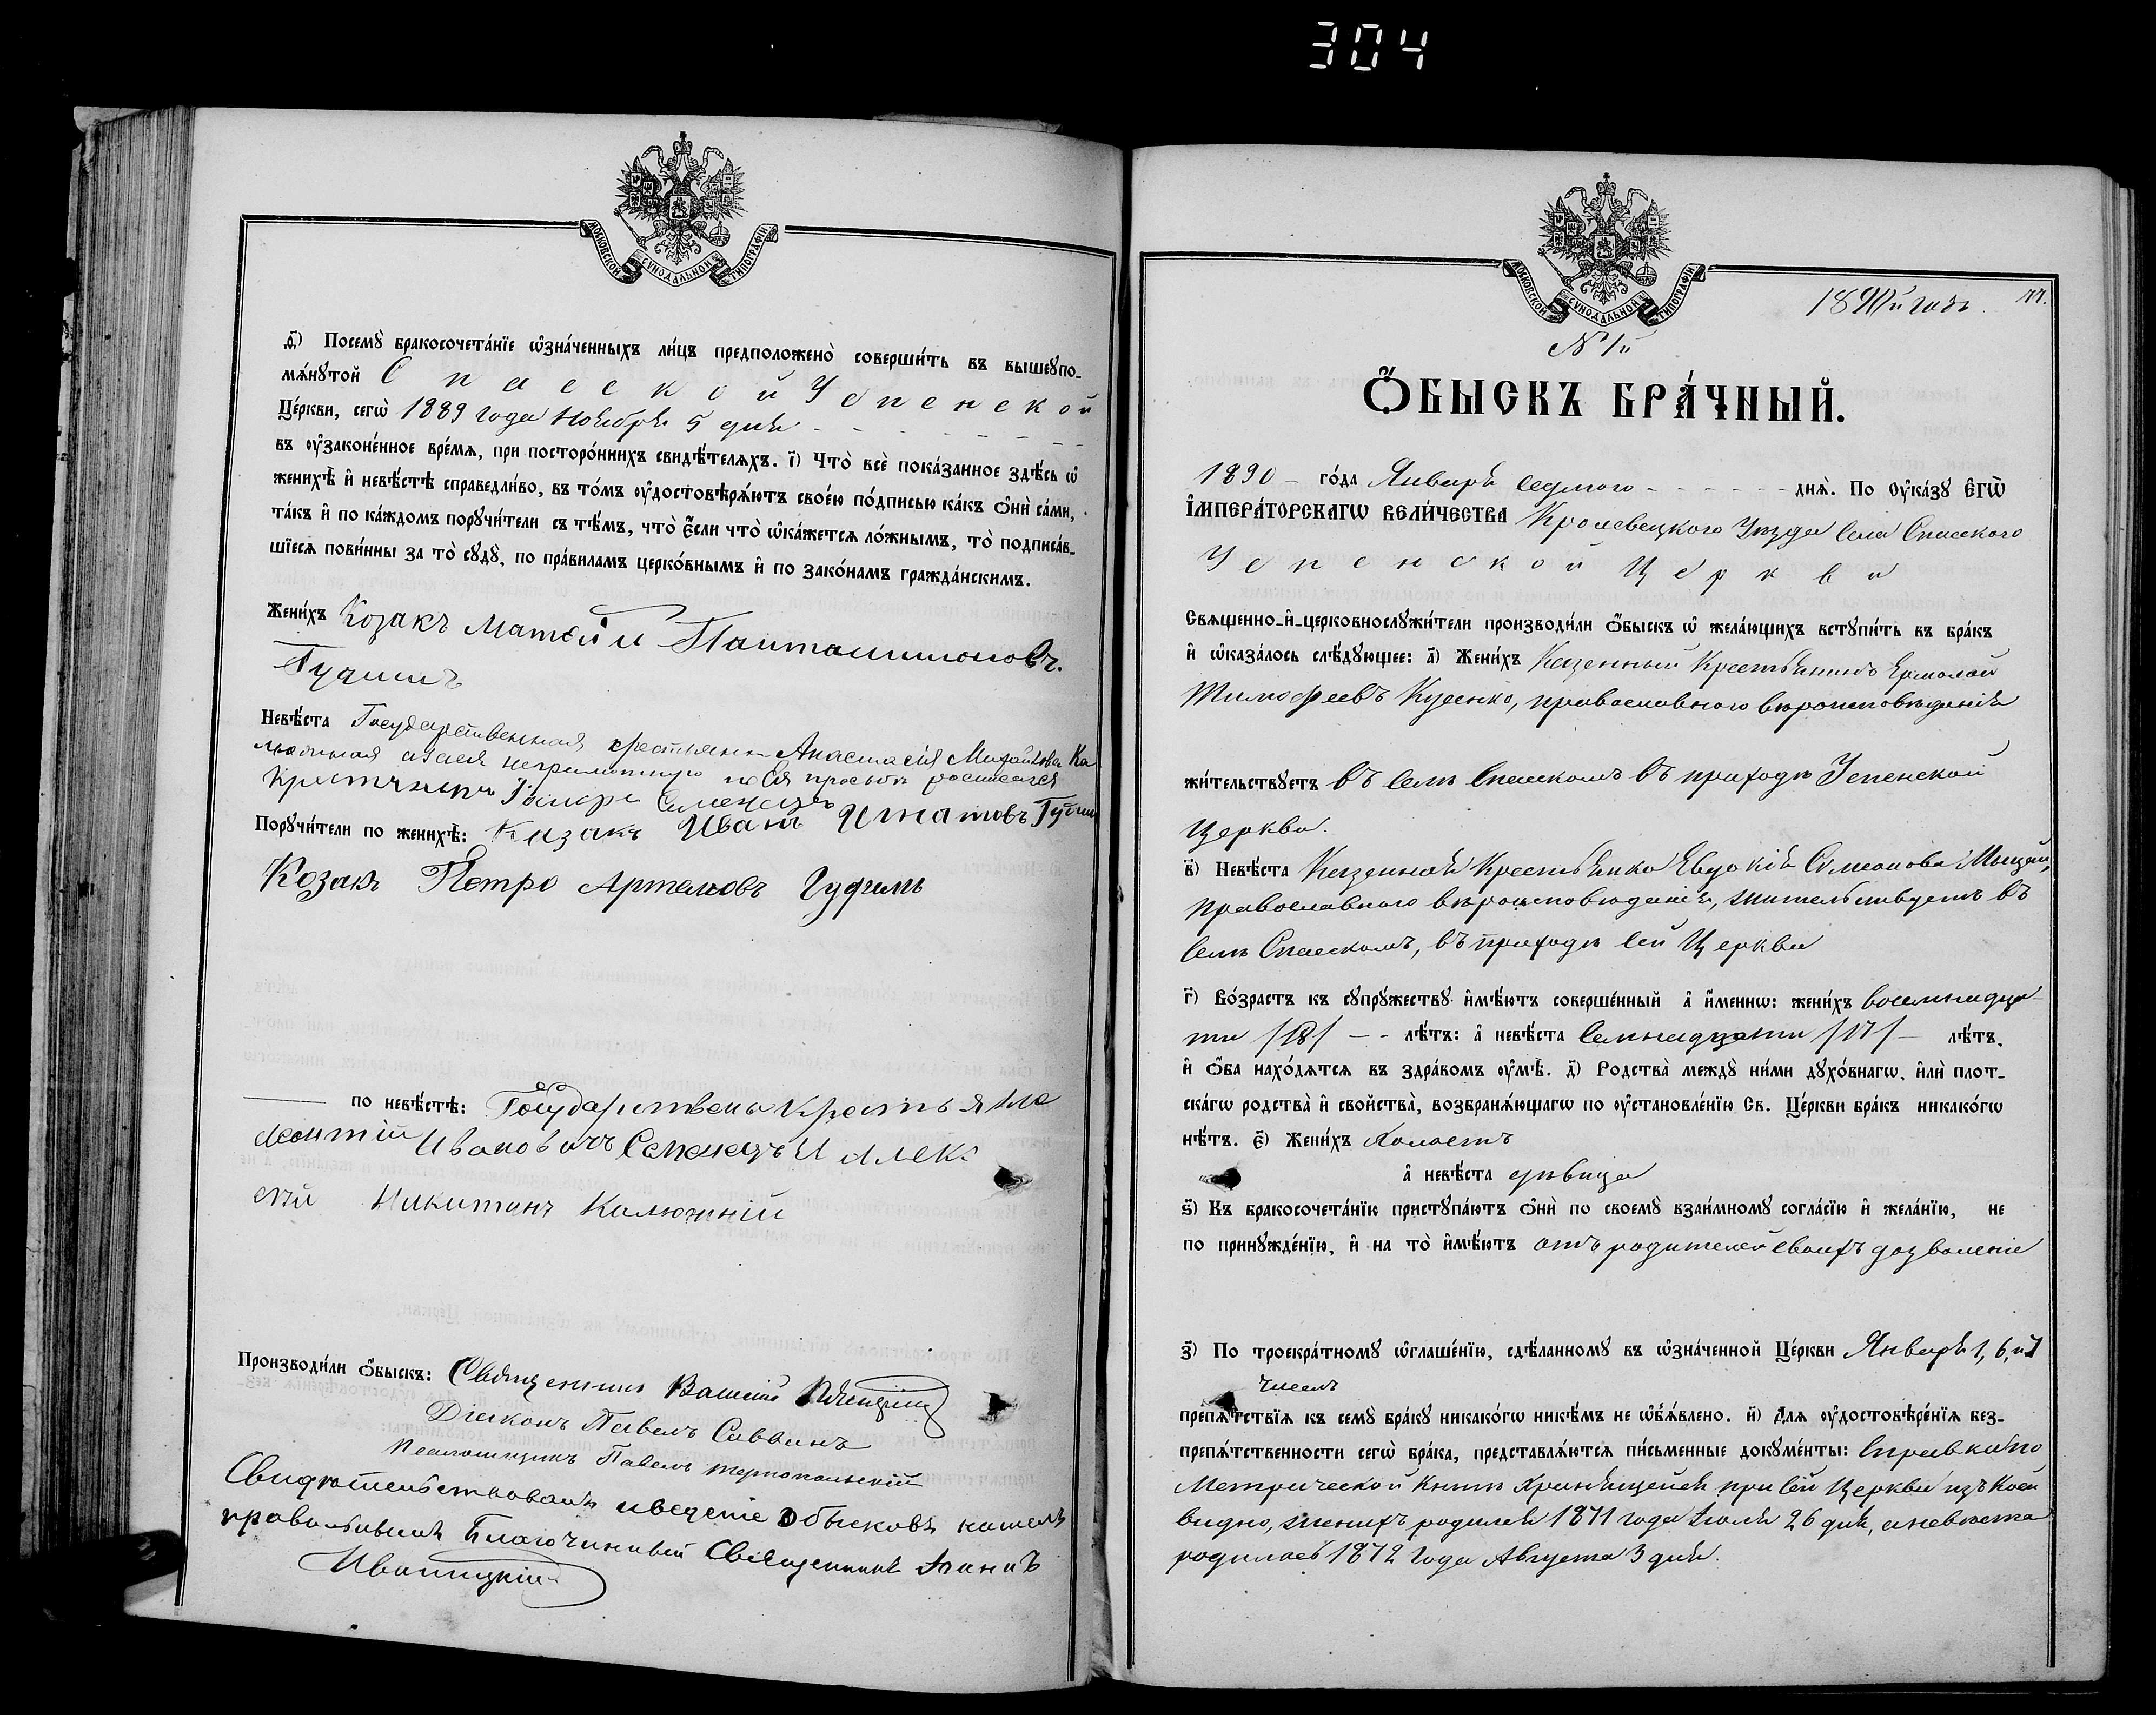 304
МОСКОВСКОЙ СѴНОДАЛЬНОЙ ТИПОГРАФІИ
д҃) Посемꙋ̀ бракосочета́нїе ѡ҆зна́ченныхъ ли́цъ предположенò соверши́ть въ вышеꙋпо-
мѧ́нꙋтой Спасской Успенской
Це́ркви, сегѡ̀ 1889 года Ноября 5 дня
въ ᲂу҆законе́нное вре́мѧ, при посторо́ннихъ свидѣ́телѧхъ. і҃) Что̀ всѐ пока́занное здѣ́сь ѡ҆
женихѣ̀ и҆ невѣ́стѣ справедли́во, въ то́мъ ᲂу҆достовѣрѧ́ютъ свое́ю по́дписью ка́къ ѻ҆нѝ са́ми,
та́къ и҆ по ка́ждомъ порꙋчи́тели съ тѣ́мъ, что̀ є҆́сли что̀ ѡ҆ка́жетсѧ ло́жнымъ, то̀ подписа́в-
шїесѧ пови́нны за то̀ сꙋдꙋ̀, по пра́виламъ церко́внымъ и҆ по зако́намъ гражда́нскимъ.
Жени́хъ Козакъ Матѳій Пантелимоновъ
Гудимъ
Невѣ́ста Государственная крестьянка Анастасія Михайлова Ка
люжная а за нея неграмотную по ея просьбѣ росписался
Крестянинъ Семенецъ
Порꙋчи́тели по женихѣ̀: Казакъ Иванъ Игнатовъ Гудим
Козакъ Петро Артемовъ Гудимъ
по невѣ́стѣ: Государствены Крестьяне
Леонтій Ивановичъ Семенецъ И Алекс
ѣй Никитинъ Калюжній
Производи́ли ѻ҆́быскъ: Священникъ Василій
Діаконъ Павелъ Саввинъ
Псаломщикъ Павелъ Тернопольскій
Свидѣтельствовалъ и веденіе обысковъ нашелъ
правильнымъ Благочинный Священникъ Іоаннъ
Иваницкій
МОСКОВСКОЙ СѴНОДАЛЬНОЙ ТИПОГРАФІИ
1890й годъ. 77.
№ 1й
Ѻ҆́БЫСКЪ БРА́ЧНЫЙ.
1890 го́да Января седмого днѧ̀. По ᲂу҆ка́зꙋ є҆гѡ̀
і҆мпера́торскагѡ вели́чества Кролевецкого Уѣзда Села Спасского
Успенской Церкви
Свѧщенно-и҆-церковнослꙋжи́тели производи́ли ѻ҆́быскъ ѡ҆ жела́ющихъ встꙋпи́ть въ бра́къ
и҆ ѡ҆каза́лось слѣ́дꙋющее: а҃) Жени́хъ Казенный Крестьянинъ Ермолай
Тимофеевъ Кусенко, православного вѣроисповѣданія
жи́тельствꙋетъ въ селѣ Спасскомъ въ приходѣ Успенской
Церкви.
в҃) Невѣ́ста Казенная Крестьянка Евдокія Симонова
православного вѣроисповѣданія, жительствуетъ въ
селѣ Спасскомъ, въ приходѣ сей Церкви
г҃) Во́зрастъ къ сꙋпрꙋ́жествꙋ и҆мѣ́ютъ соверше́нный а҆ и҆́меннѡ: жени́хъ восемнадца-
ти /18/ лѣ́тъ: а҆ невѣ́ста семнадцати /17/ лѣ́тъ.
и҆ ѻ҆́ба нахо́дѧтсѧ въ здра́вомъ ᲂу҆мѣ̀. д҃) Родства̀ междꙋ̀ ни́ми дꙋхо́внагѡ, и҆лѝ плот-
ска́гѡ родства̀ и҆ сво́йства̀, возбранѧ́ющагѡ по ᲂу҆становле́нїю Св. Це́ркви бра́къ никако́гѡ
нѣ́тъ. є҃) Жени́хъ Холостъ
а҆ невѣ́ста дѣвица
ѕ҃) Къ бракосочета́нїю пристꙋпа́ютъ ѻ҆нѝ по своемꙋ̀ взаи́мномꙋ согла́сїю и҆ жела́нїю, не
по принꙋжде́нїю, и҆ на то̀ и҆мѣ́ютъ отъ родителей своихъ дозволеніе
з҃) По троекра́тномꙋ ѡ҆глаше́нїю, сдѣ́ланномꙋ въ ѡ҆зна́ченной Це́ркви Января 1, 6, и 7
чиселъ
препѧ́тствїѧ къ семꙋ̀ бра́кꙋ никако́гѡ никѣ́мъ не ѡ҆б̾ѧ́влено. и҃) Длѧ ᲂу҆достовѣре́нїѧ без-
препѧ́тственности сегѡ̀ бра́ка, представлѧ́ютсѧ пи́сьменные докꙋме́нты: Справка по
Метрической Книгѣ хранящейся при сей Церкви изъ коей
видно, женихъ родился 1871 года Іюля 26 дня, а невѣста
родилась 1872 года Августа 3 дня.